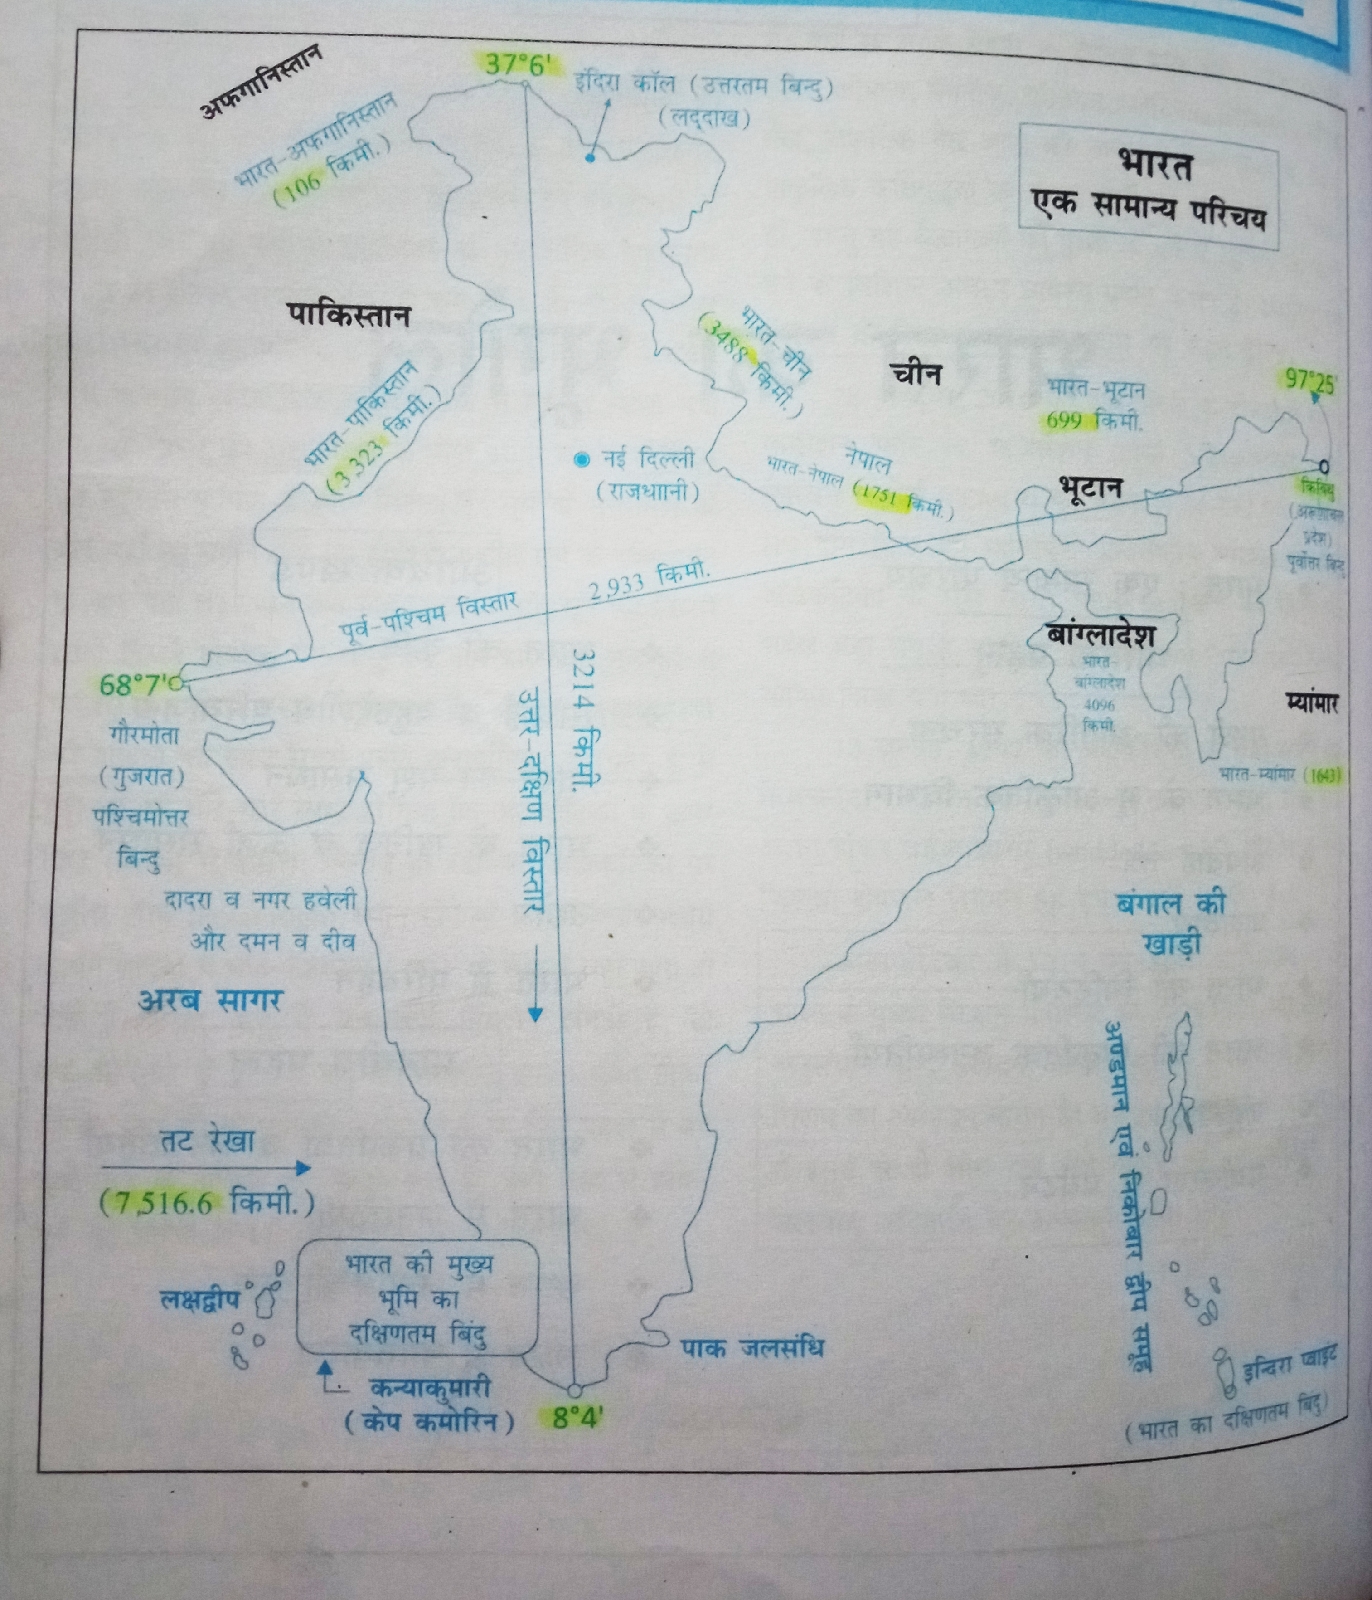 अफगानिस्तान
37°6'
इंदिरा कॉल (उत्तरतम बिन्दु)
(लद्दाख)
भारत-अफगानिस्तान
(106 किमी.)
भारत
एक सामान्य परिचय
पाकिस्तान
भारत-पाकिस्तान
(3,323 किमी.)
भारत-चीन
(3488 किमी.)
चीन
भारत-भूटान
699 किमी.
97°25'
नई दिल्ली
(राजधाानी)
नेपाल
भारत-नेपाल (1751 किमी.)
भूटान
किबिथु
(अरुणाचल
प्रदेश)
पूर्वोत्तर बिन्दु
पूर्व-पश्चिम विस्तार
2,933 किमी.
68°7'
गौरमोता
(गुजरात)
पश्चिमोत्तर
बिन्दु
3214 किमी.
उत्तर-दक्षिण विस्तार
बांग्लादेश
भारत-
बांग्लादेश
4096
किमी.
म्यांमार
भारत-म्यांमार (1643)
दादरा व नगर हवेली
और दमन व दीव
अरब सागर
बंगाल की
खाड़ी
अण्डमान एवं निकोबार द्वीप समूह
तट रेखा
(7,516.6 किमी.)
लक्षद्वीप
भारत की मुख्य
भूमि का
दक्षिणतम बिंदु
कन्याकुमारी
(केप कमोरिन)
8°4'
पाक जलसंधि
इन्दिरा प्वाइंट
(भारत का दक्षिणतम बिंदु)